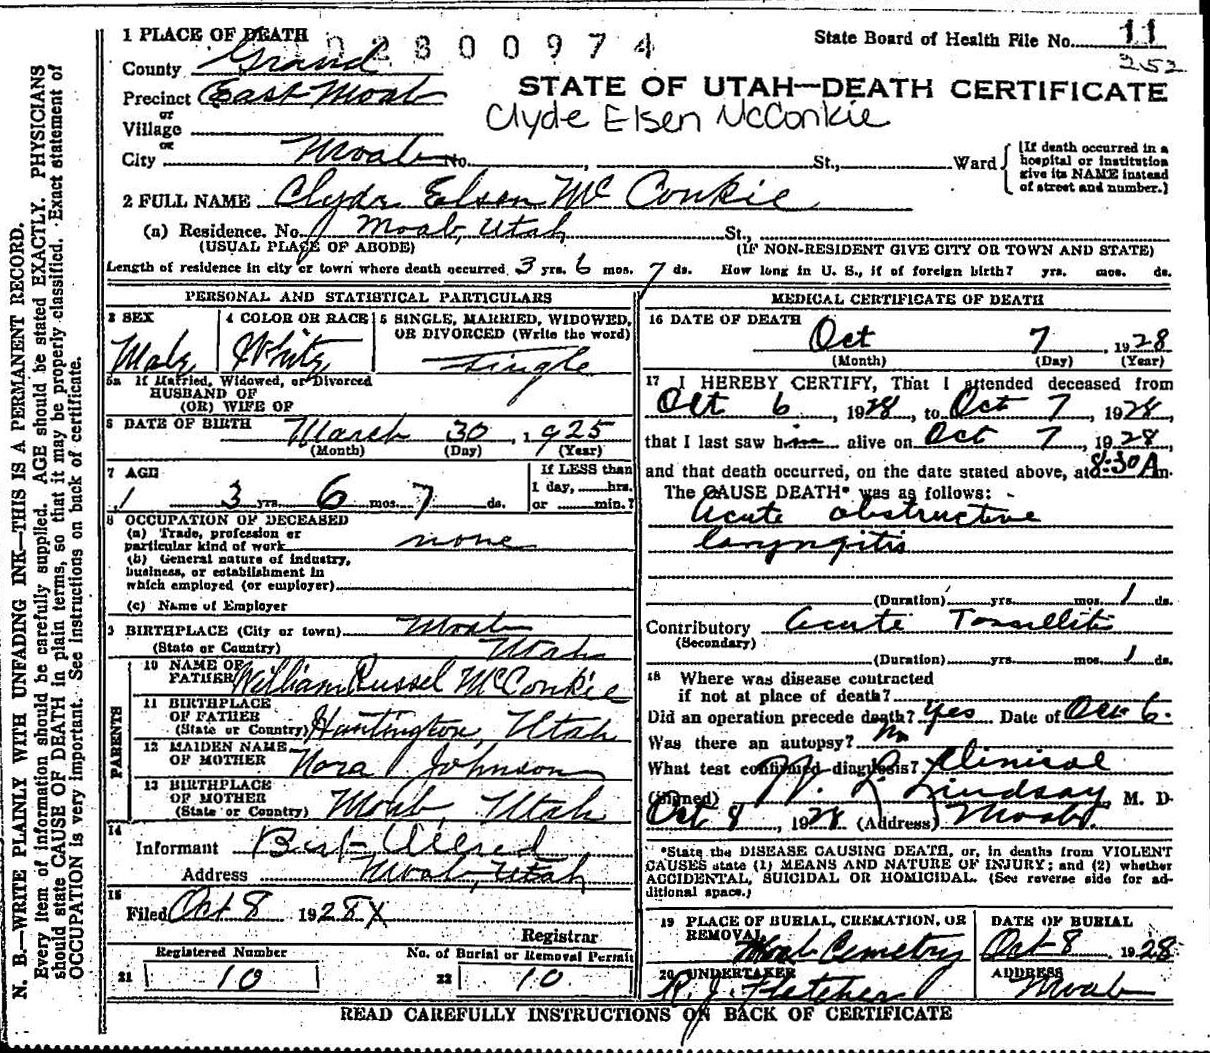 1 PLACE OF DEATH 2800974 State Board of Health File No. 11
County Grand 252
Precinct East Moab STATE OF UTAH—DEATH CERTIFICATE
or Clyde Elsen McConkie
Village
or
City Moab No. , St., Ward {[If death occurred in a hospital or institution give its NAME instead of street and number.]
2 FULL NAME Clyde Elsen McConkie
(a) Residence. No. Moab, Utah St.,
(USUAL PLACE OF ABODE) (IF NON-RESIDENT GIVE CITY OR TOWN AND STATE)
Length of residence in city or town where death occurred 3 yrs. 6 mos. 7 ds. How long in U. S., if of foreign birth? yrs. mos. ds.
PERSONAL AND STATISTICAL PARTICULARS
3 SEX 4 COLOR OR RACE 5 SINGLE, MARRIED, WIDOWED,
OR DIVORCED (Write the word)
Male White Single
5a If Married, Widowed, or Divorced
HUSBAND OF
(OR) WIFE OF
6 DATE OF BIRTH March 30, 1925
(Month) (Day) (Year)
7 AGE If LESS than
1 day, hrs.
3 yrs. 6 mos. 7 ds. or min.?
8 OCCUPATION OF DECEASED
(a) Trade, profession or
particular kind of work none
(b) General nature of industry,
business, or establishment in
which employed (or employer)
(c) Name of Employer
9 BIRTHPLACE (City or town) Moab
(State or Country) Utah
PARENTS
10 NAME OF
FATHER William Russel McConkie
11 BIRTHPLACE
OF FATHER
(State or Country) Huntington, Utah
12 MAIDEN NAME
OF MOTHER Nora Johnson
13 BIRTHPLACE
OF MOTHER
(State or Country) Moab, Utah
14
Informant Bert Allred
Address Moab, Utah
15
Filed Oct 8 1928 X
Registrar
Registered Number No. of Burial or Removal Permit
21 10 22 10
MEDICAL CERTIFICATE OF DEATH
16 DATE OF DEATH
Oct 7, 1928
(Month) (Day) (Year)
17 I HEREBY CERTIFY, That I attended deceased from
Oct 6, 1928, to Oct 7 1928,
that I last saw him alive on Oct 7, 1928
and that death occurred, on the date stated above, at 8:30 A m.
The CAUSE DEATH* was as follows:
Acute obstructive
laryngitis
(Duration) yrs. mos. 1 ds.
Contributory Acute Tonsillitis
(Secondary)
(Duration) yrs. mos. 1 ds.
18 Where was disease contracted
if not at place of death?
Did an operation precede death? Yes Date of Oct 6.
Was there an autopsy? No
What test confirmed diagnosis? Clinical
(Signed) Lindsay, M. D.
Oct 8, 1928 (Address) Moab.
*State the DISEASE CAUSING DEATH, or, in deaths from VIOLENT
CAUSES state (1) MEANS AND NATURE OF INJURY; and (2) whether
ACCIDENTAL, SUICIDAL OR HOMICIDAL. (See reverse side for ad-
ditional space.)
19 PLACE OF BURIAL, CREMATION, OR DATE OF BURIAL
REMOVAL
Moab Cemetry Oct 8 1928
20 UNDERTAKER ADDRESS
R. J. Fletcher Moab
READ CAREFULLY INSTRUCTIONS ON BACK OF CERTIFICATE
N. B.—WRITE PLAINLY WITH UNFADING INK—THIS IS A PERMANENT RECORD.
Every item of information should be carefully supplied. AGE should be stated EXACTLY. PHYSICIANS
should state CAUSE OF DEATH in plain terms, so that it may be properly classified. Exact statement of
OCCUPATION is very important. See instructions on back of certificate.